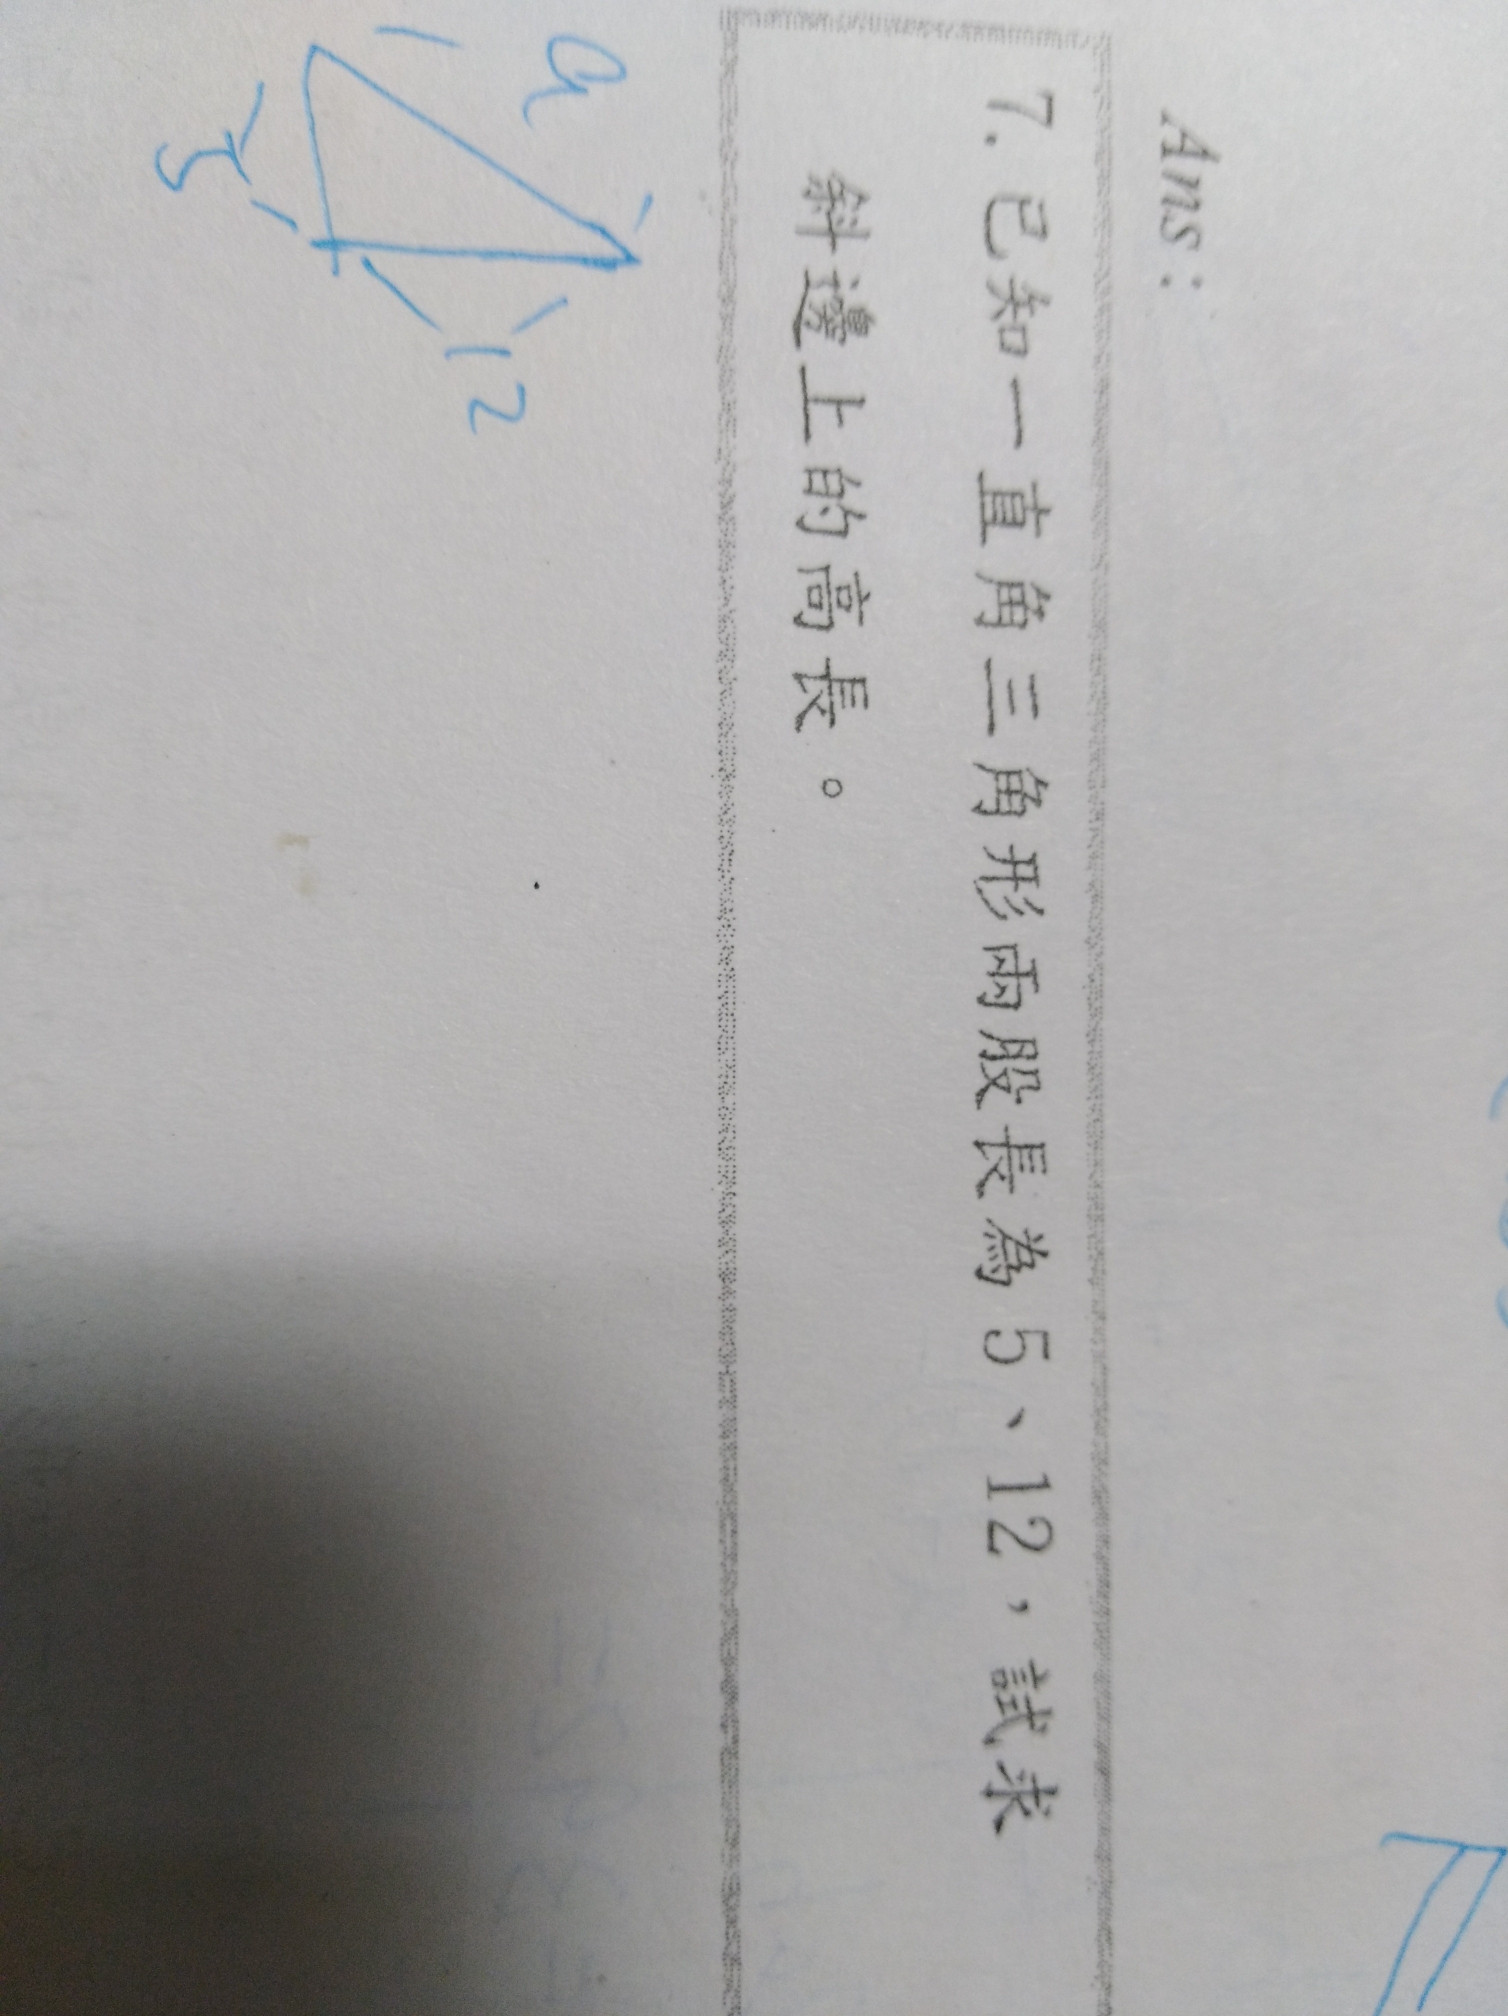 Ans:
7. 已知一直角三角形兩股長為 5、12，試求
斜邊上的高長。
a
5
12